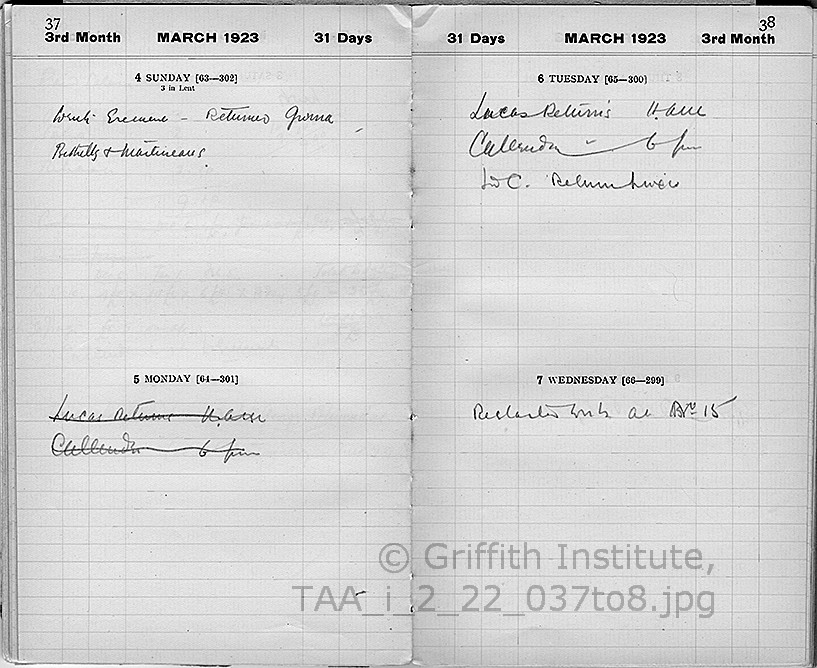 37
3rd Month MARCH 1923 31 Days
4 SUNDAY [63—302]
3 in Lent
- Returned Gurna
Bethells & Martineaus
5 MONDAY [64—301]
Lucas returns 11. a.m.
Callender 6 pm
38
31 Days MARCH 1923 3rd Month
6 TUESDAY [65—300]
Lucas Returns 11 am
Callender " 6 pm
Ld C. Return Luxor
7 WEDNESDAY [66—299]
work at No 15
© Griffith Institute,
TAA_i_2_22_037to8.jpg